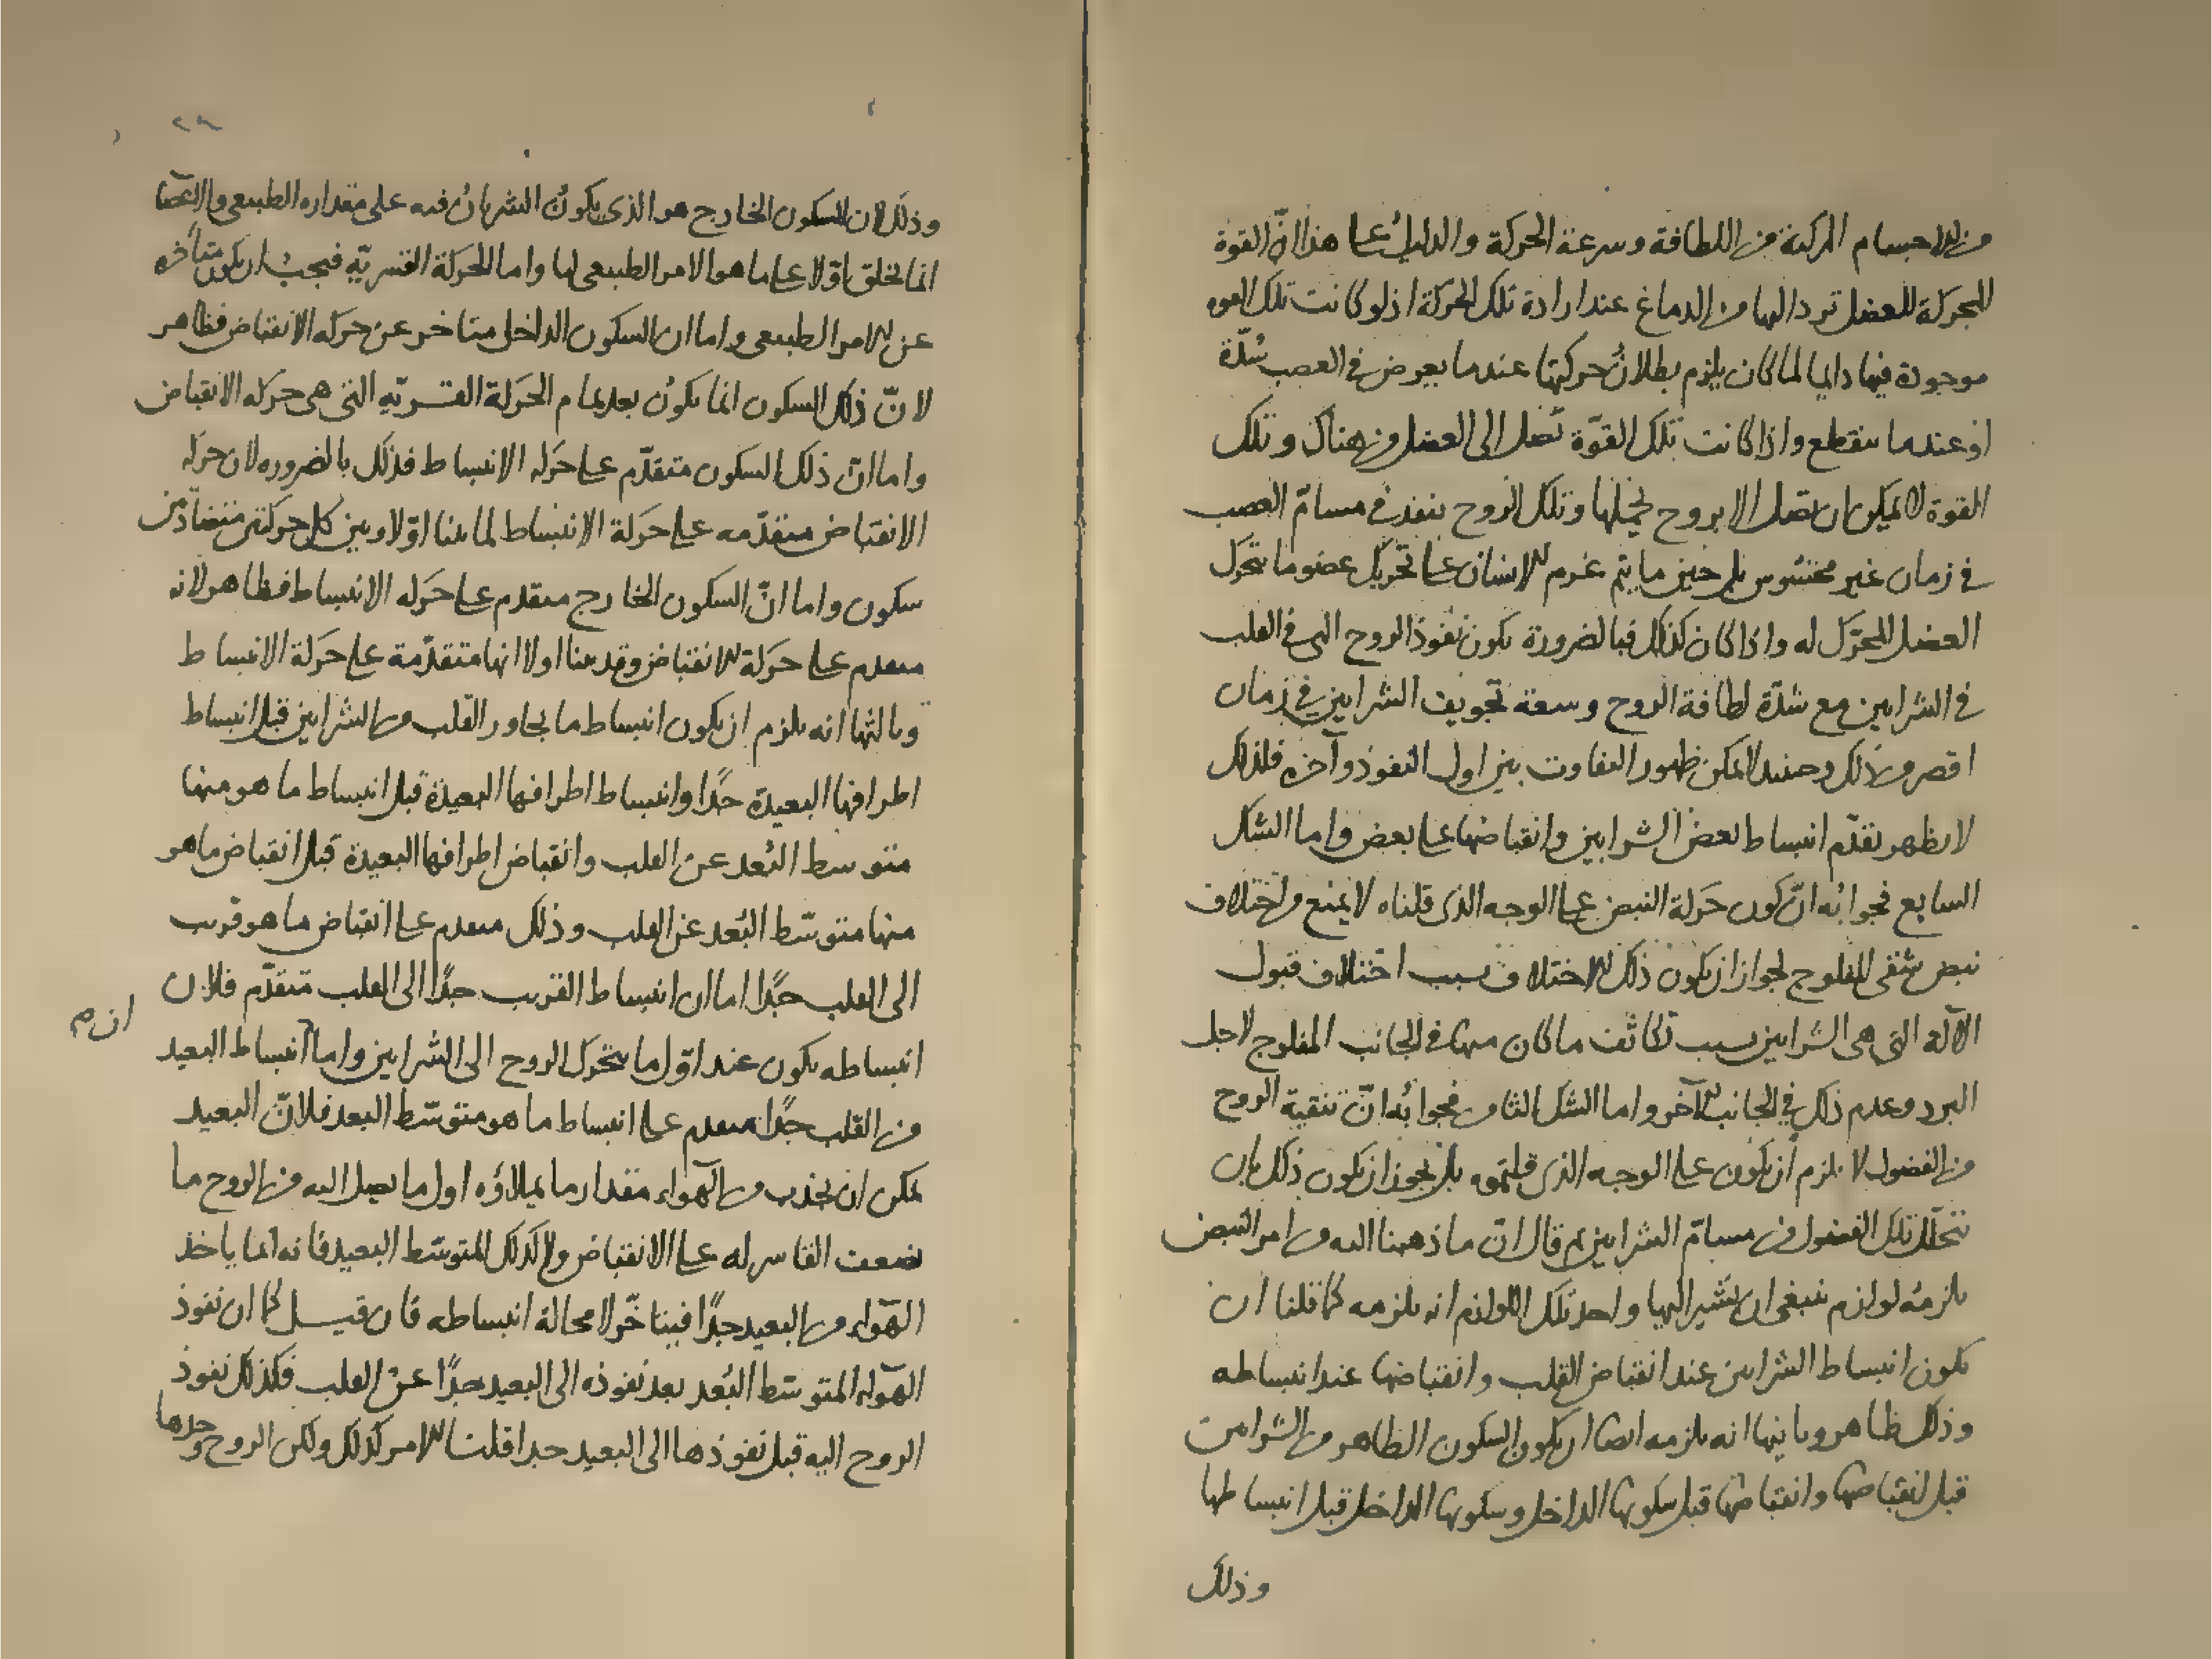 من الاجسام المركبة من اللطافة وسرعة الحركة والدليل على هذا ان القوة
المحركة للعضل ترد اليها من الدماغ عند ارادة تلك الحركة اذ لو كانت تلك القوة
موجودة فيها دايما لما كان يلزم بطلان حركتها عندما يعرض في العصب شدّة
او عندما ينقطع واذا كانت تلك القوّة تصل الى العضل من هناك وتلك
القوة لا يمكن ان تصل الا بروح يحملها وتلك الروح ينفذ في مسامّ العصب
في زمان غير محسوس بل حين ما يتم عزم الانسان على تحريك عضو ما يتحرك
العضل المحرّك له واذا كان كذلك فبالضرورة يكون نفوذ الروح التي في القلب
في الشرايين مع شدّة لطافة الروح وسعة تجويف الشرايين في زمان
اقصر من ذلك وحينئذ لا يمكن ظهور التفاوت بين اول النفوذ وآخره فلذلك
لا يظهر تقدّم انبساط بعض الشرايين وانقباضها على بعض واما الشك
السابع فجوابه ان كون حركة النبض على الوجه الذى قلناه لا يمنع من اختلاف
نبض شقى المفلوج لجواز ان يكون ذلك الاختلاف بسبب اختلاف قبول
الآلة التى هى الشرايين بسبب تكاثف ما كان منها في الجانب المفلوج لاجل
البرد وعدم ذلك في الجانب الآخر واما الشك الثامن فجوابُه انّ تنقية الروح
من الفضول لا يلزم ان يكون على الوجه الذى قلتموه بل يجوز ان يكون ذلك بان
تتحلّل تلك الفضول من مسامّ الشرايين ثم قال انّ ما ذهبنا اليه من امر النبض
يلزمُه لوازم ينبغى ان نشير اليها واحد تلك اللوازم انه يلزمه كما قلنا ان
يكون انبساط الشرايين عند انقباض القلب وانقباضها عند انبساطه
وذلك ظاهر وثانيها انه يلزمه ايضا ان يكون السكون الظاهر من الشرايين
قبل انقباضها وانقباضها قبل سكونها الداخل وسكونها الداخل قبل انبساطها
وذلك
وذلك لان السكون الخارج هو الذى يكون الشريان فيه على مقداره الطبيعى والاعضا
انما يخلق اوّلا على ما هو الامر الطبيعى لها واما الحركة القسريّه فيجب ان يكون متأخره
عن الامر الطبيعى واما ان السكون الداخل متاخر عن حركه الانقباض فظاهر
لانّ ذلك السكون انما يكون بعد تمام الحركة القسريّه التى هى حركه الانقباض
واما انّ ذلك السكون متقدّم على حركه الانبساط فذلك بالضروره لان حركه
الانقباض متقدّمه على حركة الانبساط لما بينا اوّلا وبين كل حركتين متضادتين
سكون واما انّ السكون الخارج متقدم على حركه الانبساط فظاهر لانه
متقدم على حركة الانقباض وقد بينا اولا انها متقدّمة على حركة الانبساط
وثالثها انه يلزم ان يكون انبساط ما يجاور القلب من الشرايين قبل انبساط
اطرافها البعيدة جدًا وانبساط اطرافها البعيدة قبل انبساط ما هو منها
متوسط البُعد عن القلب وانقباض اطرافها البعيدة قبل انقباض ما هو
منها متوسّط البُعد عن القلب وذلك متقدم على انقباض ما هو قريب
الى القلب جدًا اما ان انبساط القريب جدًا الى القلب متقدّم فلان
ان م
انبساطه يكون عند اوّل ما يتحرك الروح الى الشرايين واما انبساط البعيد
من القلب جدًا متقدم على انبساط ما هو متوسّط البعد فلانّ البعيد
يمكن ان يجذب من الهواء مقدار ما يملاؤه اول ما يصل اليه من الروح ما
القاسر له على الانقباض ولا كذلك المتوسّط البعيد فانه انما ياخذ
الهواء من البعيد جدًا فيتاخّر لا محالة انبساطه فان قيل كما ان نفوذ
الهواء المتوسّط البُعد بعد نفوذه الى البعيد جدًا عن القلب فكذلك نفوذ
الروح اليه قبل نفوذها الى البعيد جدا قلنا الامر كذلك ولكن الروح وحدها